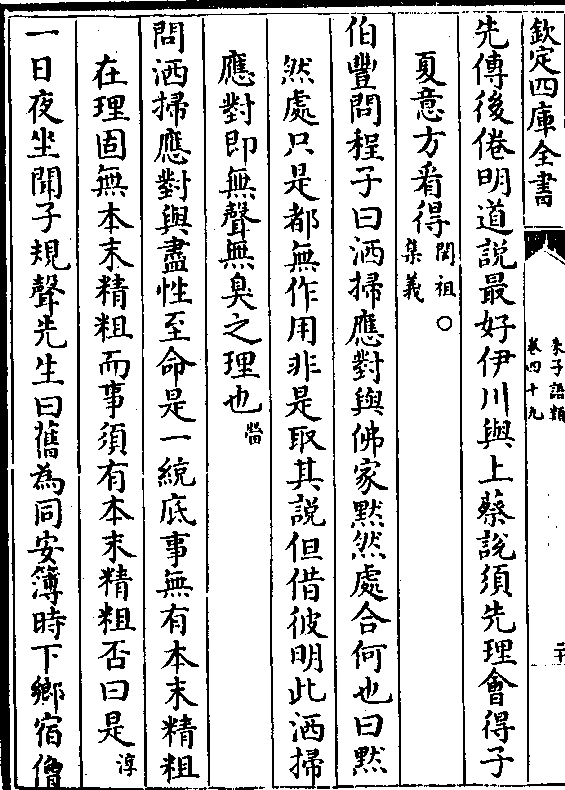 欽定四庫全書
朱子語類
卷四十九
二十
先傳後倦明道說最好伊川與上蔡說須先理會得子
夏意方看得閎祖○
集義
伯豐問程子曰洒掃應對與佛家黙然處合何也曰黙
然處只是都無作用非是取其說但借彼明此洒掃
應對即無聲無臭之理也㽦
問洒掃應對與盡性至命是一統底事無有本末精粗
在理固無本末精粗而事須有本末精粗否曰是淳
一日夜坐聞子規聲先生曰舊為同安簿時下鄉宿僧